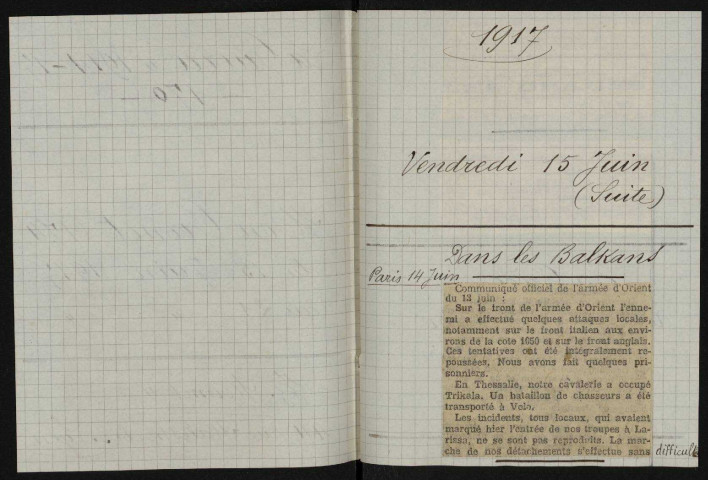 1917
Vendredi 15 Juin
(Suite)
Dans les Balkans
Paris 14 Juin
Communiqué officiel de l'armée d'Orient
du 13 juin :
Sur le front de l'armée d'Orient l'enne-
mi a effectué quelques attaques locales,
notamment sur le front italien aux envi-
rons de la cote 1050 et sur le front anglais.
Ces tentatives ont été intégralement re-
poussées. Nous avons fait quelques pri-
sonniers.
En Thessalie, notre cavalerie a occupé
Trikala. Un bataillon de chasseurs a été
transporté à Volo.
Les incidents, tous locaux, qui avaient
marqué hier l'entrée de nos troupes à La-
rissa, ne se sont pas reproduits. La mar-
che de nos détachements s'effectue sans difficulté